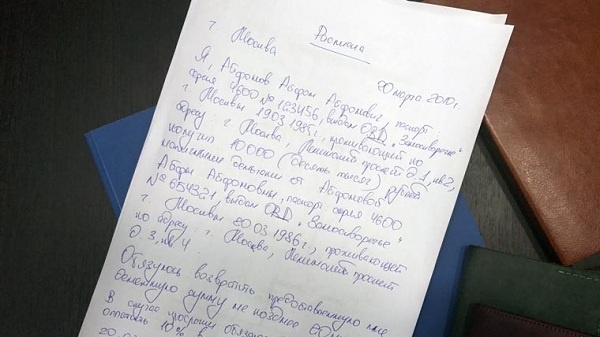 Расписка
г. Москва 20 марта 2010 г.
Я, Абдромов Абдрам Абдрамович, паспорт
серия 4600 № 123456, выдан ОВД "Замоскворечье"
г. Москвы 19.03.1985 г., проживающий по
адресу: г. Москва, Ленинский проспект д. 1, кв. 2,
получил 10 000 (десять тысяч) рублей
наличными деньгами от Абдромовой
Абдры Абдрамовны, паспорт серия 4600
№ 654321 выдан ОВД "Замоскворечье"
г. Москвы 20.03.1986 г., проживающей
по адресу: г. Москва, Ленинский проспект
д. 3, кв. 4.
Обязуюсь возвратить предоставленную мне
денежную сумму не позднее
В случае просрочки
оплатить 10% в
20.